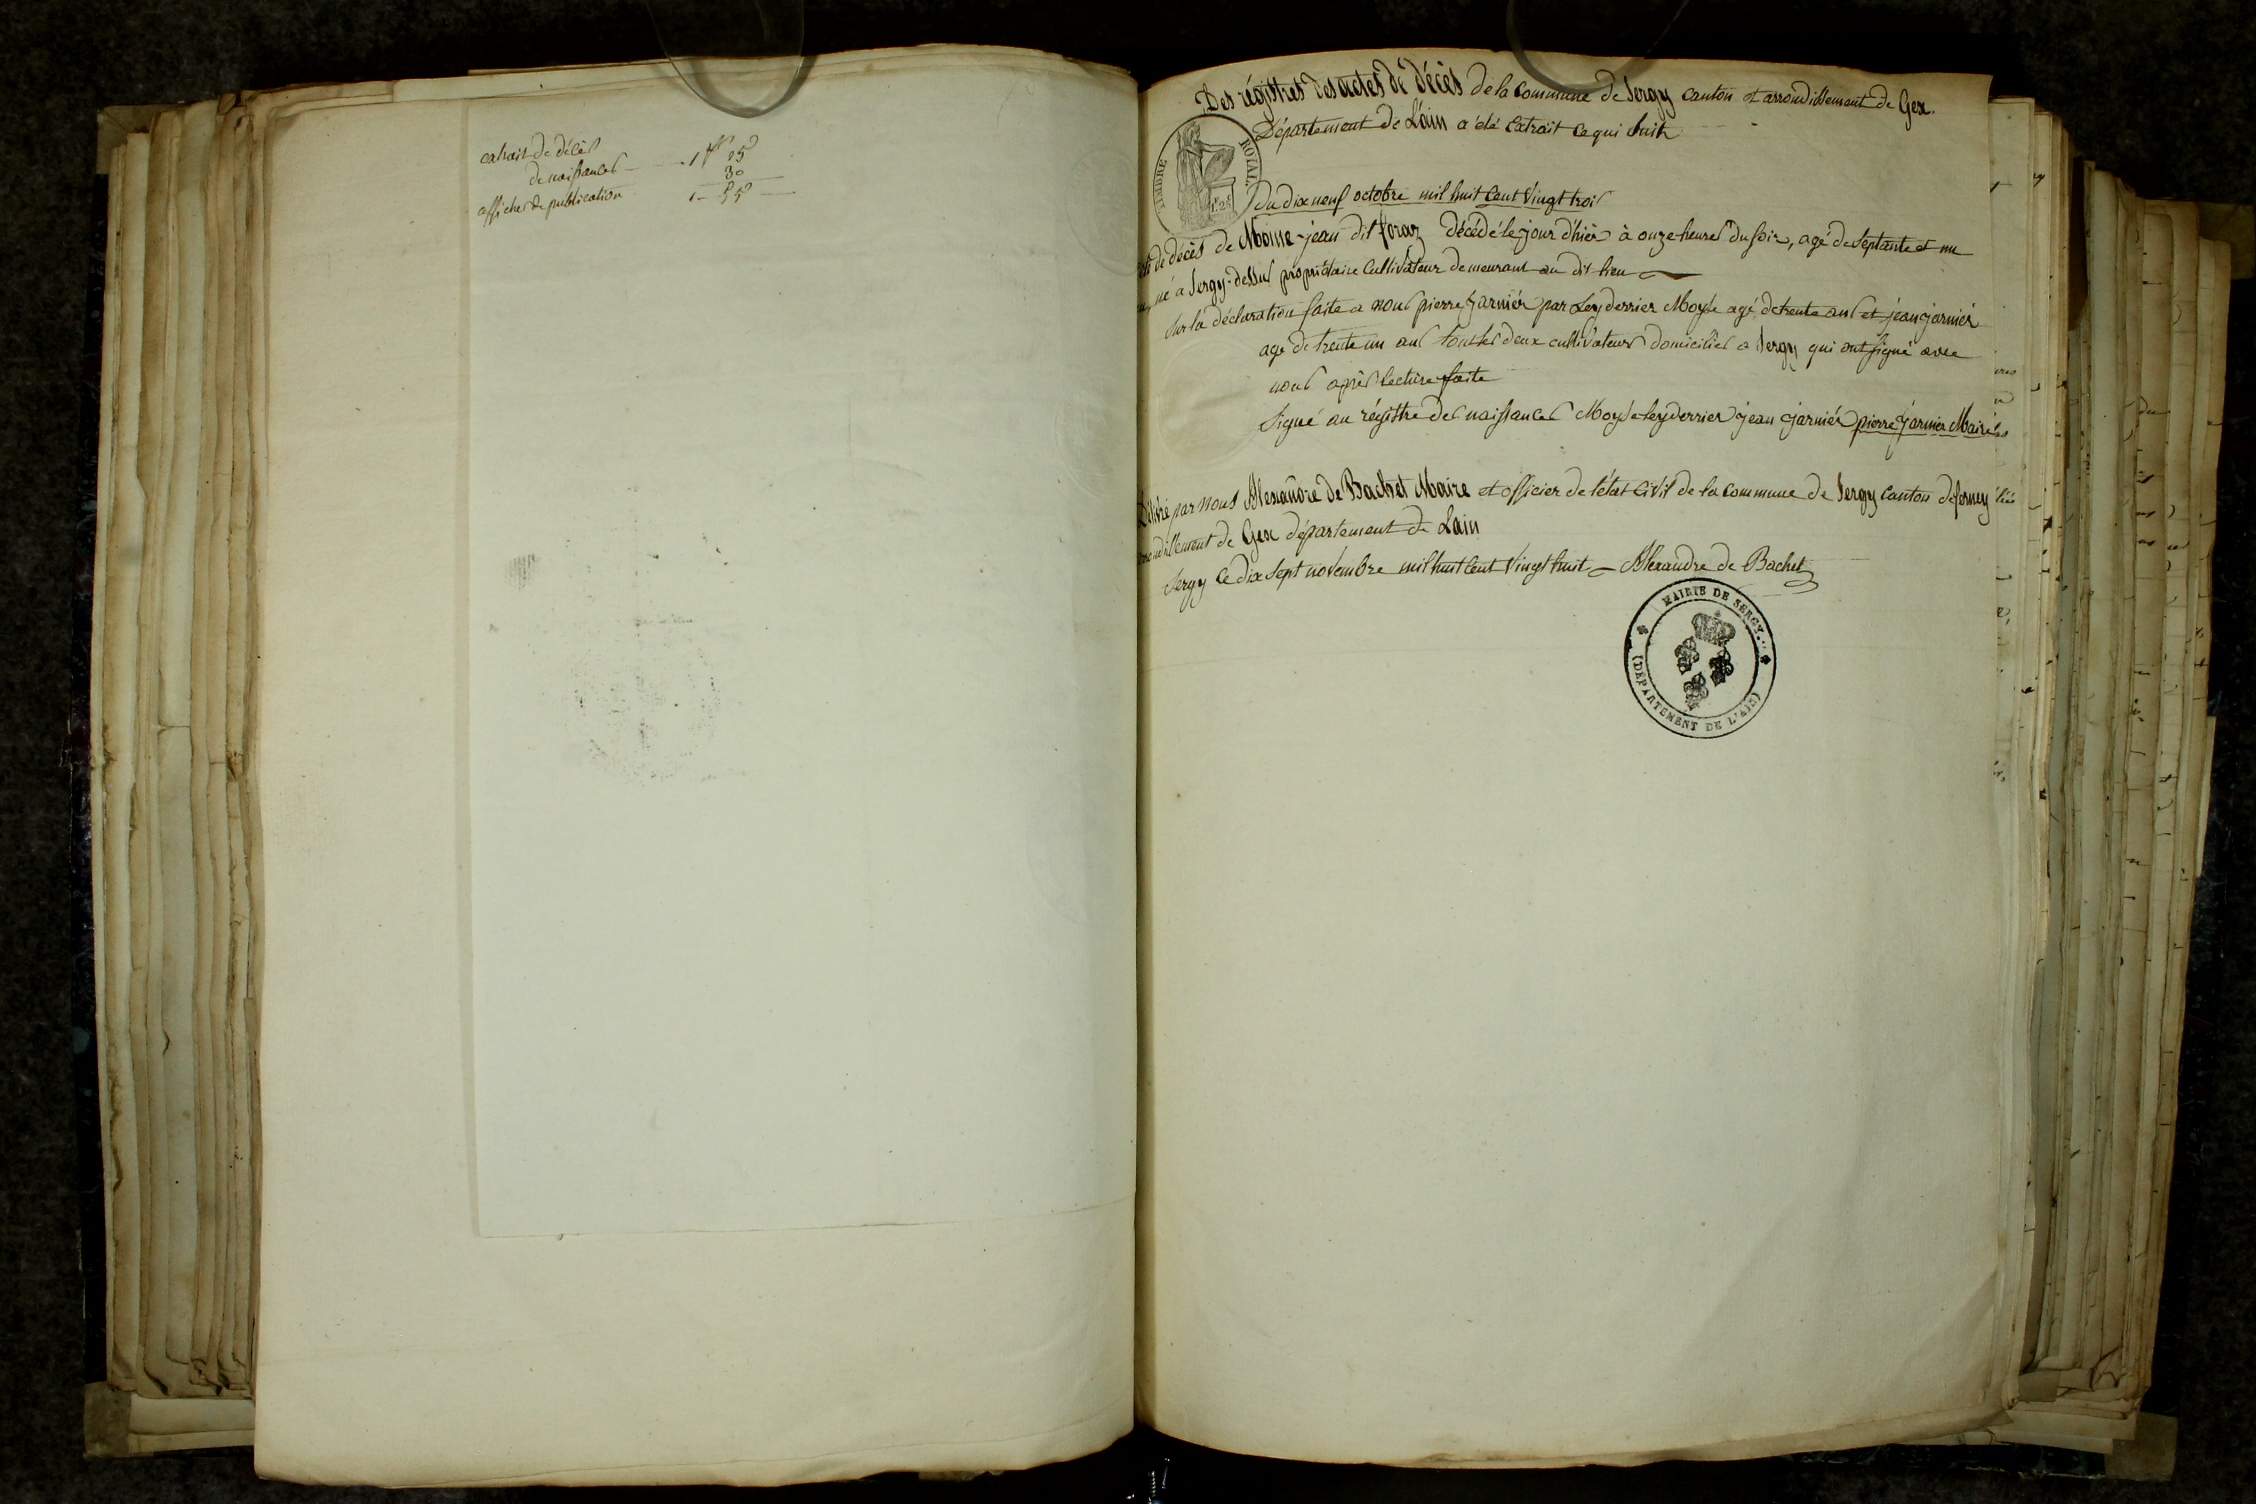 extrait de décès
de naissances — 1 ff 25
30
affiche de publication 1 — 55
Des régistres des actes de décès de la Commune de Sergy canton et arrondissement de Gex.
Département de L'ain a été Extrait ce qui suit
TIMBRE ROYAL
Du dix neuf octobre mil huit Cent Vingt trois
de décès de Moïse jean dit foraz décédé le jour d'hièr à onze heures du soir, agé de septante et un
né a Sergy-dessus propriétaire Cultivateur demeurant au dit lieu
Sur la déclaration faite a nous pierre jarniér par Leyderrier Moyse agé de trente ans et jean jarniér
agé de trente un ans tous les deux cultivateurs domiciliés a Sergy qui ont signé avec
nous après lecture faite
Signé au régistre des naissances Moyse Leyderrier jean jarniér pierre jarniér Maire
Délivré par nous Alexandre de Bachet Maire et officier de l'état Civil de la Commune de Sergy Canton de ferney
arrondissement de Gex département de Lain
Sergy Ce dix sept novembre mil huit Cent Vingt huit — Alexandre de Bachet
MAIRIE DE SERGY
(DÉPARTEMENT DE L'AIN)